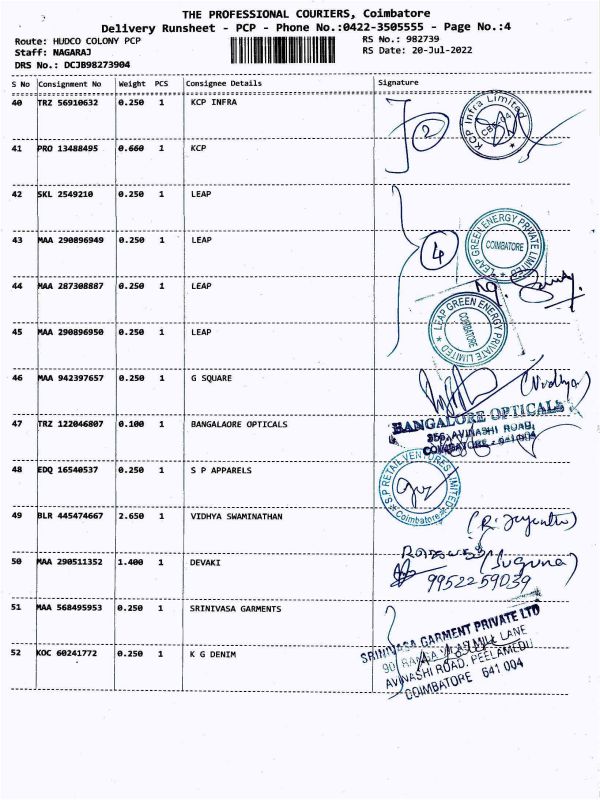 THE PROFESSIONAL COURIERS, Coimbatore
Delivery Runsheet - PCP - Phone No.:0422-3505555 - Page No.:4
Route: HUDCO COLONY PCP RS No.: 982739
Staff: NAGARAJ RS Date: 20-Jul-2022
DRS No.: DCJB98273904
S No Consignment No Weight PCS Consignee Details Signature
40 TRZ 56910632 0.250 1 KCP INFRA
KCP Infra Limited
CBE-14
2
41 PRO 13488495 0.660 1 KCP
42 SKL 2549210 0.250 1 LEAP
43 MAA 290896949 0.250 1 LEAP
4
LEAP GREEN ENERGY PRIVATE LIMITED
COIMBATORE
44 MAA 287308887 0.250 1 LEAP
LEAP GREEN ENERGY PRIVATE LIMITED
COIMBATORE
45 MAA 290896950 0.250 1 LEAP
46 MAA 942397657 0.250 1 G SQUARE
(Vidhya)
47 TRZ 122046807 0.100 1 BANGALAORE OPTICALS
BANGALORE OPTICALS
356, AVINASHI ROAD,
COIMBATORE - 641 004
48 EDQ 16540537 0.250 1 S P APPARELS
S.P RETAIL VENTURES LIMITED
Coimbatore
49 BLR 445474667 2.650 1 VIDHYA SWAMINATHAN
50 MAA 290511352 1.400 1 DEVAKI
(Suguna)
9952259039
51 MAA 568495953 0.250 1 SRINIVASA GARMENTS
SRINIVASA GARMENT PRIVATE LTD
MILL LANE
AVINASHI ROAD, PEELAMEDU
COIMBATORE 641 004
52 KOC 60241772 0.250 1 K G DENIM